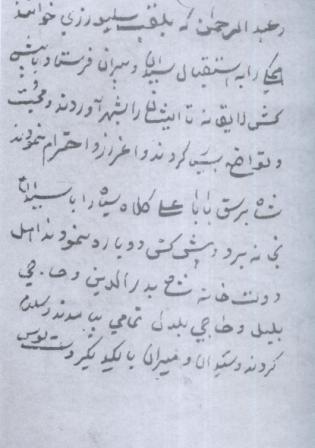 رعبد الرحمن که بلقب سلیورزی خوانند
را به استقبال سیدان و میران فرستاد و با پیش
کش لایقانه تا ایشان را بشهر آوردند و محبت
و تواضع بسی کردند و اعزاز و احترام نمودند
شاه برسق بابا علی کلاه سیاه را با سیدان
بخانه برد و پیش کش دوباره نمودند اهل
دولت خانه شاه بدرالدین و حاجی
بلبل و حاجی بلدل تمامی بیامدند و سلام
کردند و سیدان و میران با یکدیگر دست بوس